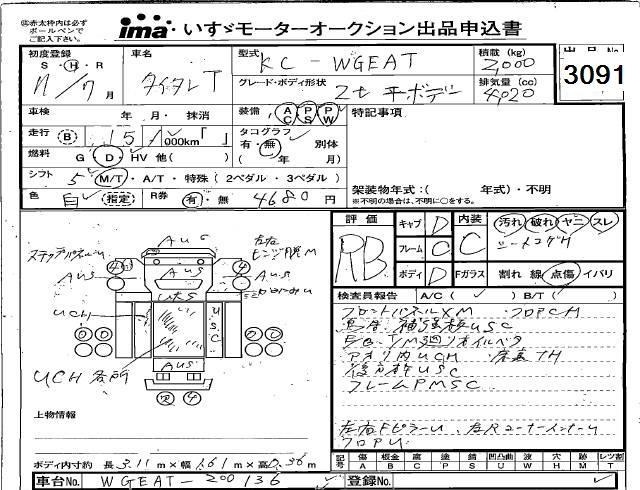 ㊟赤太枠内は必ず
ボールペンで
ご記入下さい。
ima・いすゞモーターオークション出品申込書
初度登録
S・H・R
11/7月
車名
タイタンT
型式
KC-WGEAT
積載(kg)
2,000
グレード・ボディ形状
2t 平ボデー
排気量(cc)
4,020
出品No
3091
車検 年 月・抹消
装備 AC PS PW
特記事項
走行 B 151,000km「 」
タコグラフ
有・無 別体
( 年 月)
燃料 G D HV 他( )
シフト 5 M/T・A/T・特殊(2ペダル・3ペダル)
架装物年式:( 年式)・不明
※不明の場合は、不明に○をする。
色 白(指定) R券 有・無 4680円
評価 RB
キャブ D
フレーム C
ボディ D
内装 C
汚れ 破れ ヤニ スレ
シートコゲM
Fガラス 割れ 線 点傷 イバリ
検査員報告 A/C( ✓ ) B/T( ✓ )
フロントパネルXM フロアCH
補強板USC
アオリ内UCH 床裏7H
フレームPMSC
左右FピラーU 左Rコーナーインナーu
フロアU
AUS
左右
ヒンジ腐M
AUS
AUS
AUS
UCH
USC
AUS
UCH各所
上物情報
ボディ内寸約 長3.11m×幅1.61m×高0.36m
記号 傷A 板金B 腐C 塗P 錆S 凹凸曲U 波W 穴H 跡M レツ割T
車台No. WGEAT-200136
登録No.